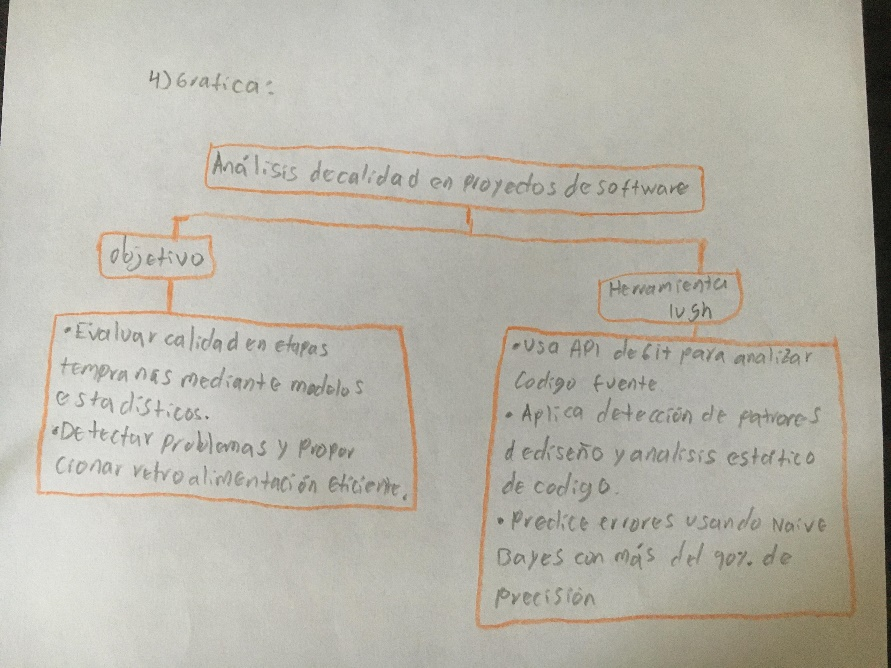 4) Grafica:
Análisis de calidad en proyectos de software
objetivo
Herramienta
lugh
• Evaluar calidad en etapas
tempranas mediante modelos
estadísticos.
• Detectar problemas y propor
cionar retroalimentación eficiente.
• Usa API de Git para analizar
Codigo fuente.
• Aplica detección de patrones
de diseño y analisis estático
de codigo.
• Predice errores usando Naive
Bayes con más del 90% de
precisión